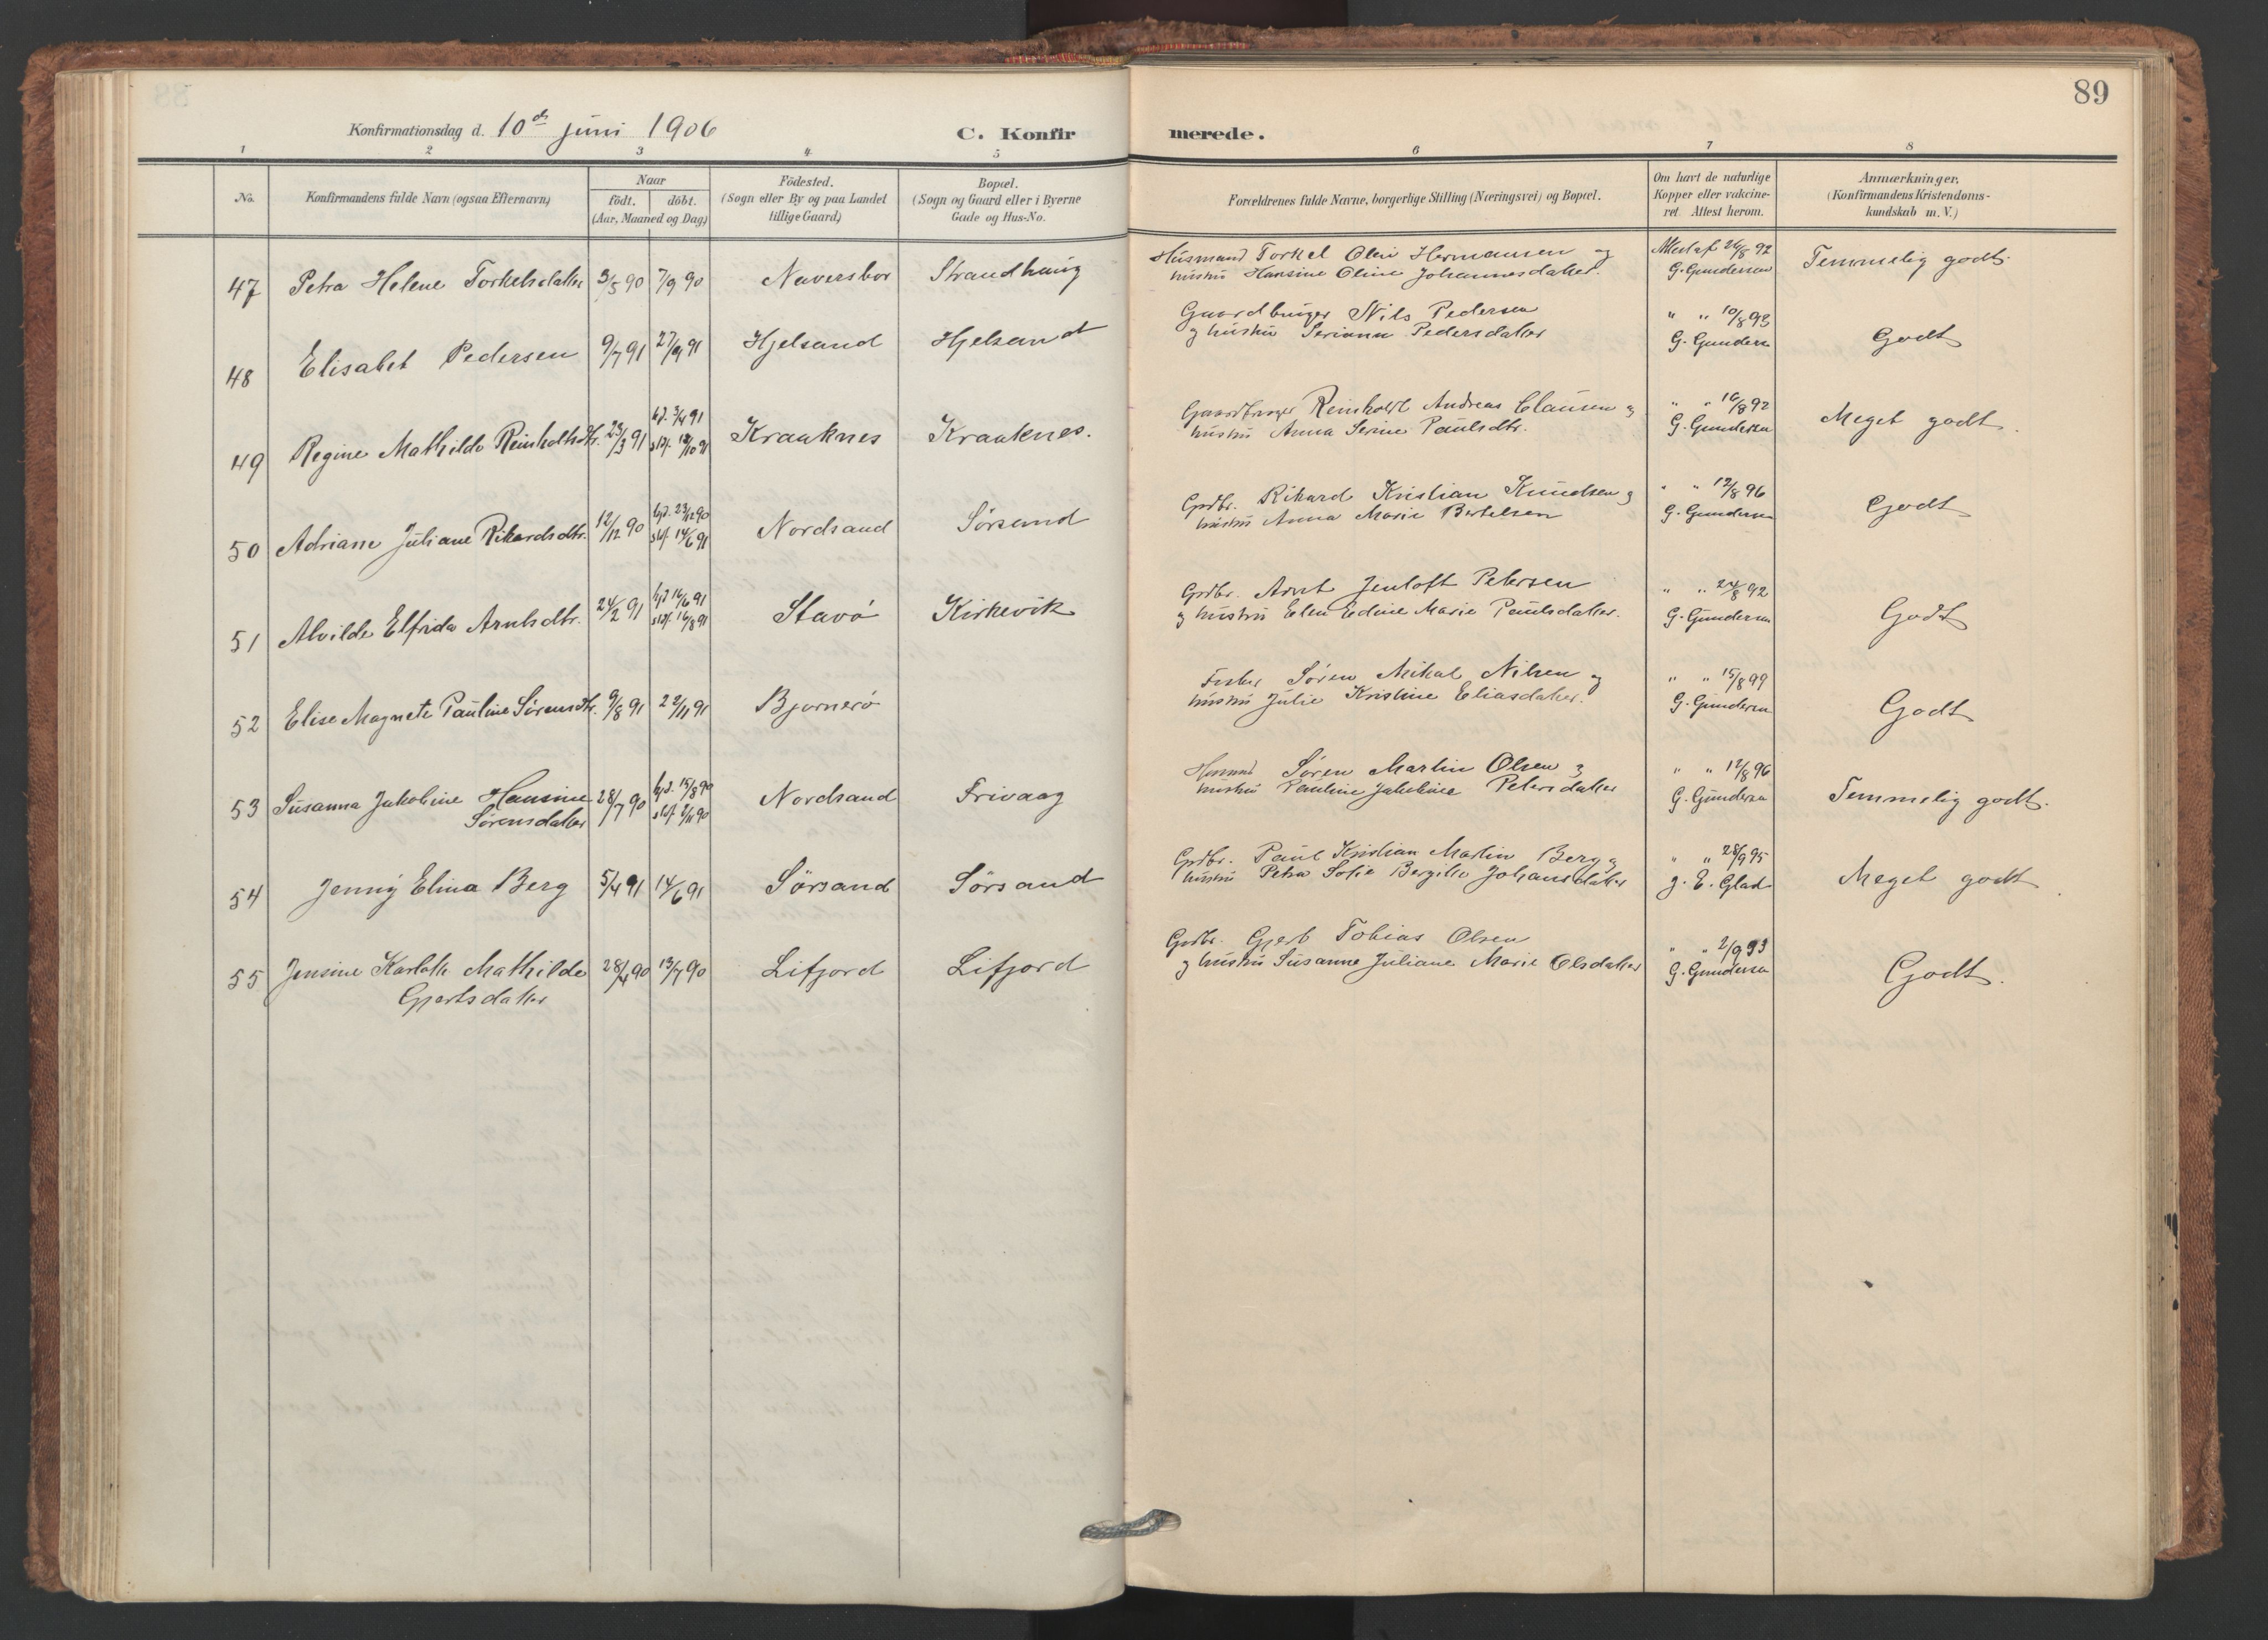 89
Konfirmationsdag d. 10de juni 1906 C. Konfirmerede.
1 2 3 4 5 6 7 8
No. Konfirmandens fulde Navn (ogsaa Efternavn) Naar født. døbt. (Aar, Maaned og Dag) Fødested. (Sogn eller By og paa Landet tillige Gaard) Bopæl. (Sogn og Gaard eller i Byerne Gade og Hus-No. Forældrenes fulde Navne, borgerlige Stilling (Næringsvei) og Bopæl. Om havt de naturlige Kopper eller vakcineret. Attest herom. Anmærkninger. (Konfirmandens Kristendomskundskab m. V.)
47 Petra Helene Torkelsdatter 3/5 90 7/9 90 Naversbor Strandhaug Husmand Torkel Olai Hermansen og
hustru Hansine Oline Johannesdatter. Attest af 26/8 92 G. Gundersen Temmelig godt.
48 Elisabet Pedersen 9/7 91 27/9 91 Hjelsand Hjelsand Gaardbruger Nils Pedersen
og hustru Seriana Pedersdatter " " 10/8 93 G. Gundersen Godt
49 Regine Mathilde Reinholtsdtr. 23/3 91 hjd. 3/4 91 stf. 18/10 91 Kraaknes Kraaknes. Gaardbruger Reinholdt Andreas Clausen og
hustru Anna Serine Paulsdtr. " " 16/8 92 G. Gundersen Meget godt.
50 Adriane Juliane Rikardsdtr. 12/12 90 hjd. 23/12 90 stf. 14/6 91 Nordsand Sørsand Grdbr. Rikard Kristian Knudsen og
hustru Anna Marie Bertelsen " " 12/8 96 G. Gundersen Godt
51 Alvilde Elfrida Arntsdtr. 24/2 91 hjd 16/6 91 stf. 16/8 91 Stavø Kirkevik Grdbr. Arnt Jentoft Petersen
og hustru Elen Edine Marie Paulsdatter. " " 24/8 92 G. Gundersen Godt
52 Elise Magnete Pauline Sørensdtr. 9/8 91 22/11 91 Bjørnerø Fisker Søren Mikal Nilsen og
hustru Julie Kristine Eliasdatter. " " 15/8 99 G. Gundersen Godt
53 Susanna Jakobine Hansine
Sørensdatter 28/7 90 hjd. 15/8 90 stf. 2/11 90 Nordsand Frivaag Husmd Søren Martin Olsen og
hustru Pauline Jakobine Petersdatter " " 12/8 96 G. Gundersen Temmelig godt.
54 Jenny Elina Berg 5/4 91 14/6 91 Sørsand Sørsand Grdbr. Paul Kristian Martin Berg og
hustru Petra Sofie Bergitte Johansdatter " " 28/9 95 J. E. Glad Meget godt.
55 Jensine Karlotte Mathilde
Gjertsdatter 28/4 90 13/7 90 Lifjord Lifjord Grdbr. Gjert Tobias Olsen
og hustru Susanne Juliane Marie Olsdatter " " 2/9 93 G. Gundersen Godt.